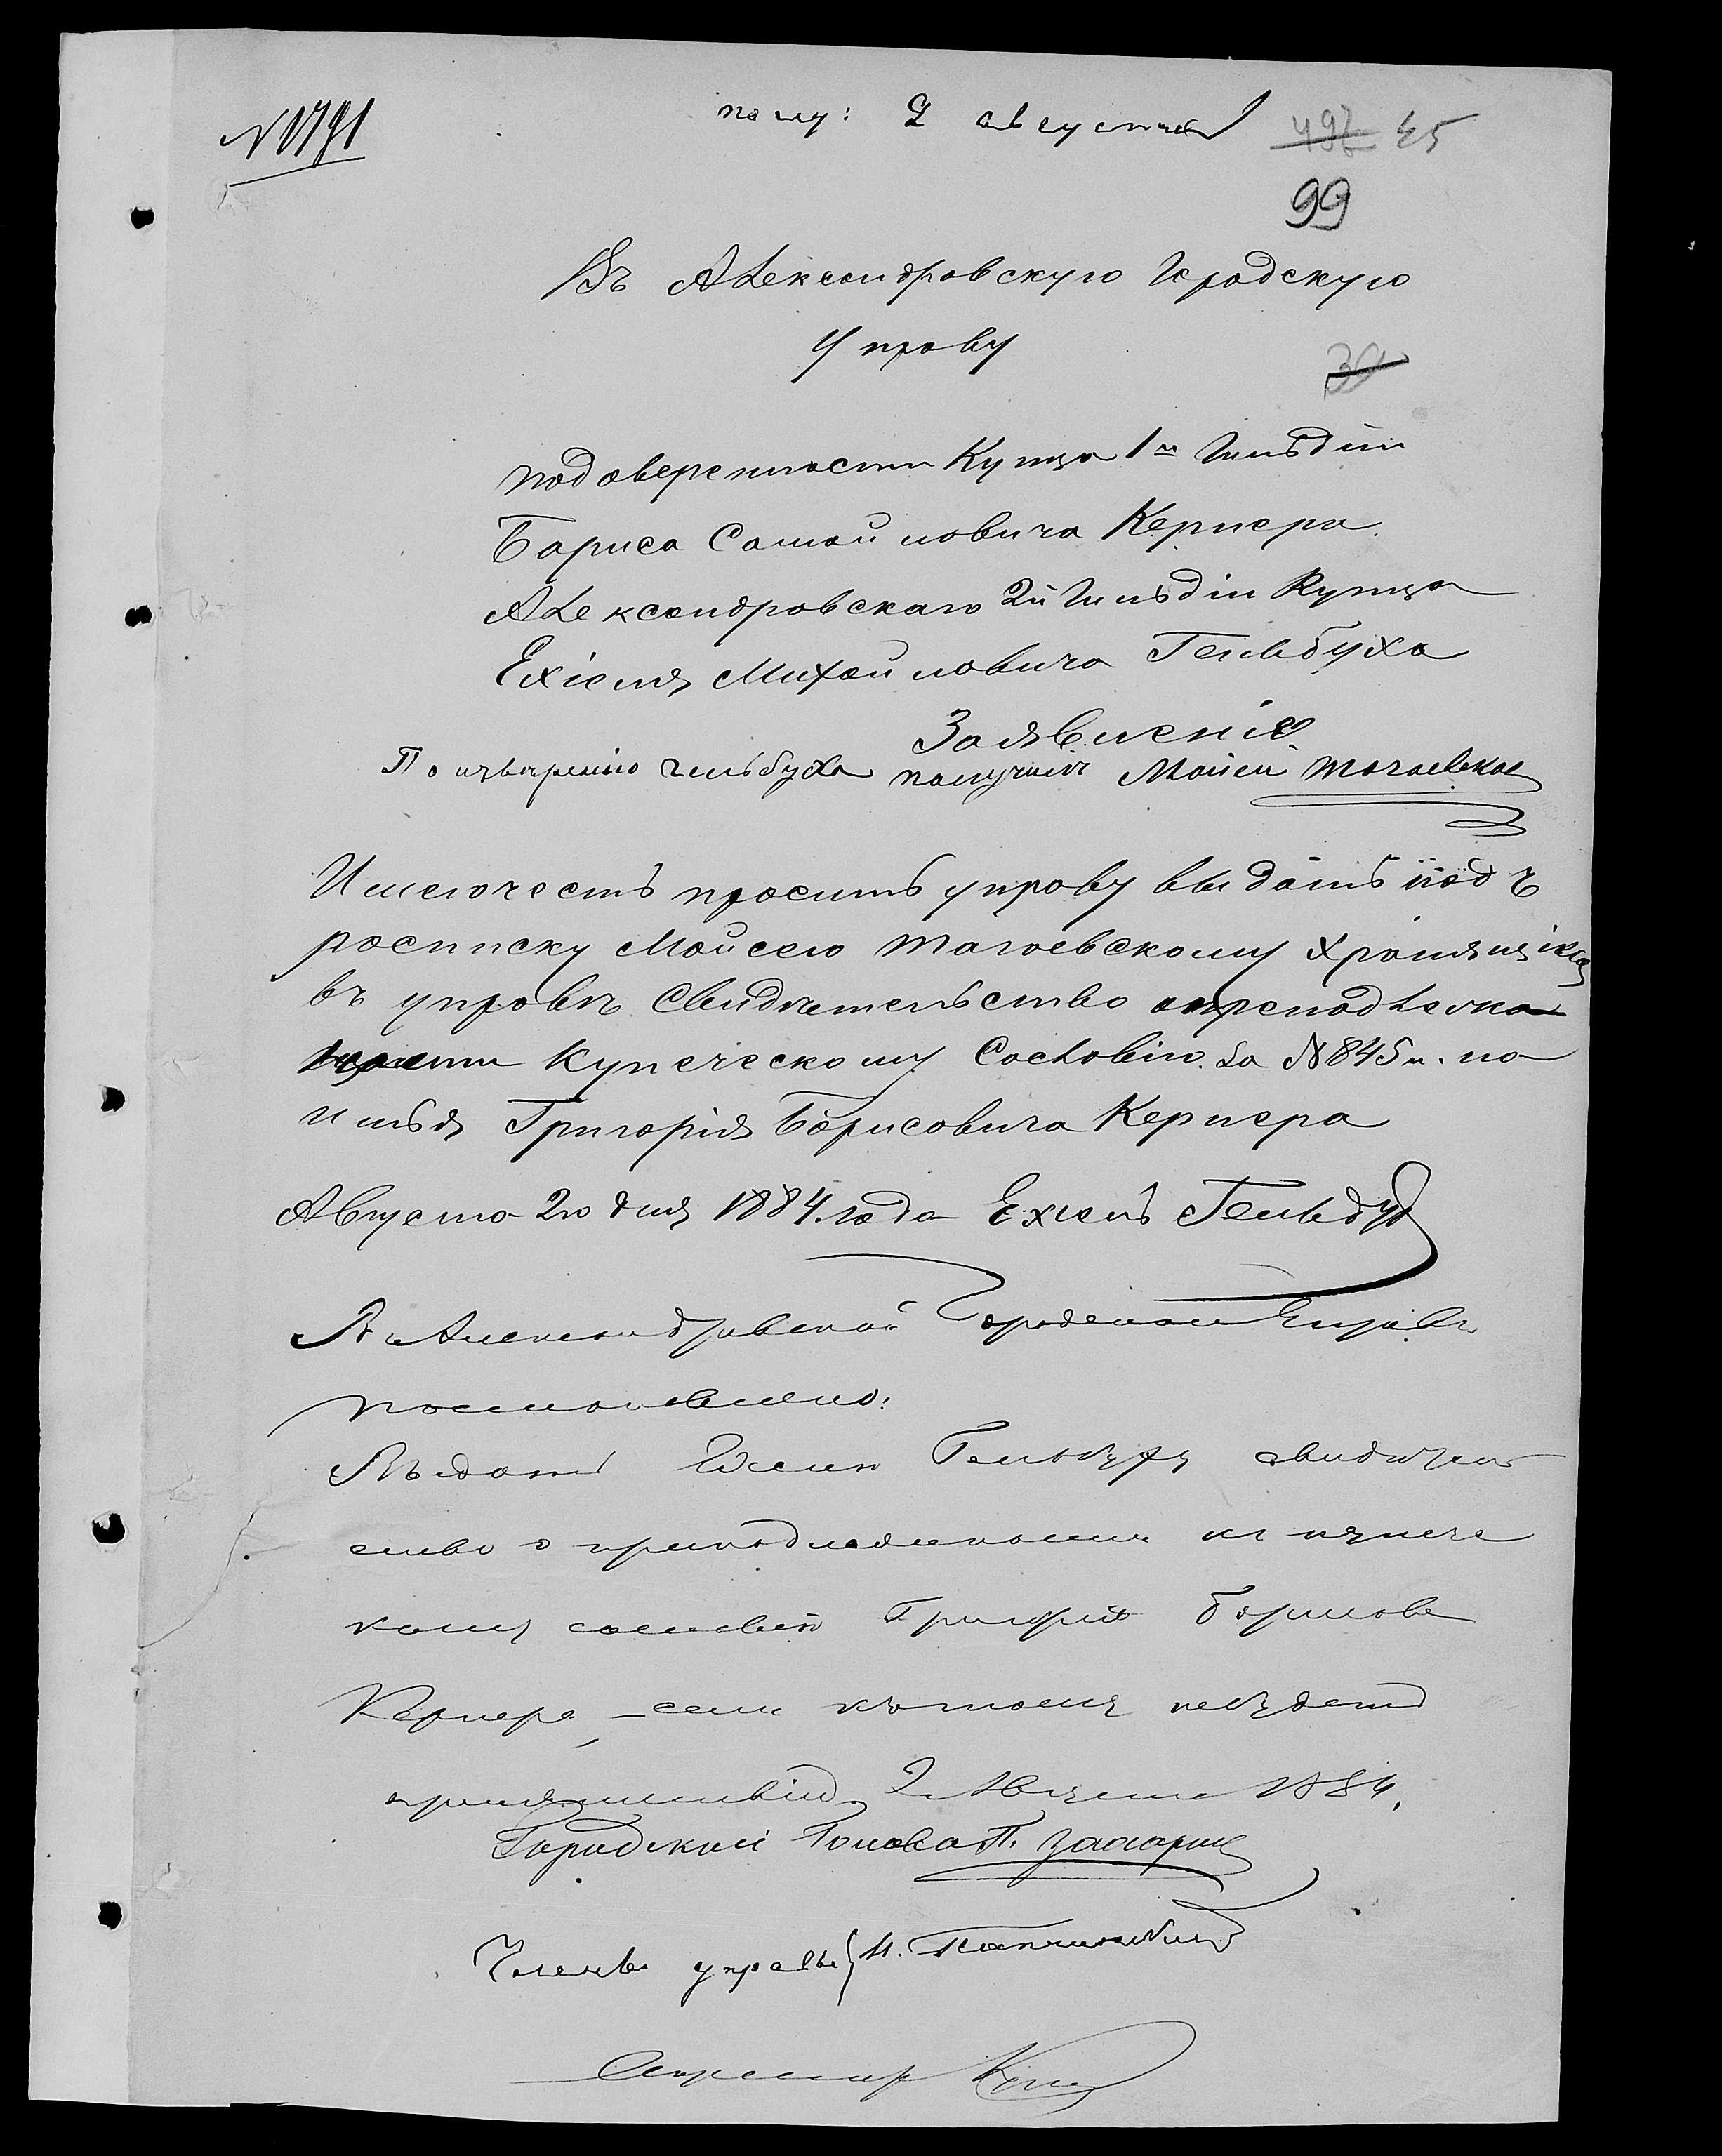 № 1791
полу: 2 августа
497 45
99
Въ Александровскую Городскую
Управу
39
подоверенности Купца 1й Гильдіи
Бориса Самойловича Кернера
Александровскаго 2й Гильдіи Купца
Ехіеля Михайловича Гельбуха
Заявленіе
По изверению Гельбуха получилъ Мойсей Тагаевский
Имеючесть просить управу выдать подъ
росписку Мойсею Тагаевскому хронящіися
въ управѣ Свидѣтельство опреподлежно
сти Купеческому Сословію за № 845м. по
имья Григорія Борисовича Кернера
Августа 2го дня 1884. года Ехіель Гельбух
Въ Александровской Городской Управѣ
постановлено:
Выдать Гельбуху свидѣтель
ство о принодлежности къ купече
кому сословію Григорія Борисова
Кернера, – если къ тому небудетъ
препятствій. 2 Августа 1884.
Городской Голова П. Захарин
Членъ управы
Секретарь